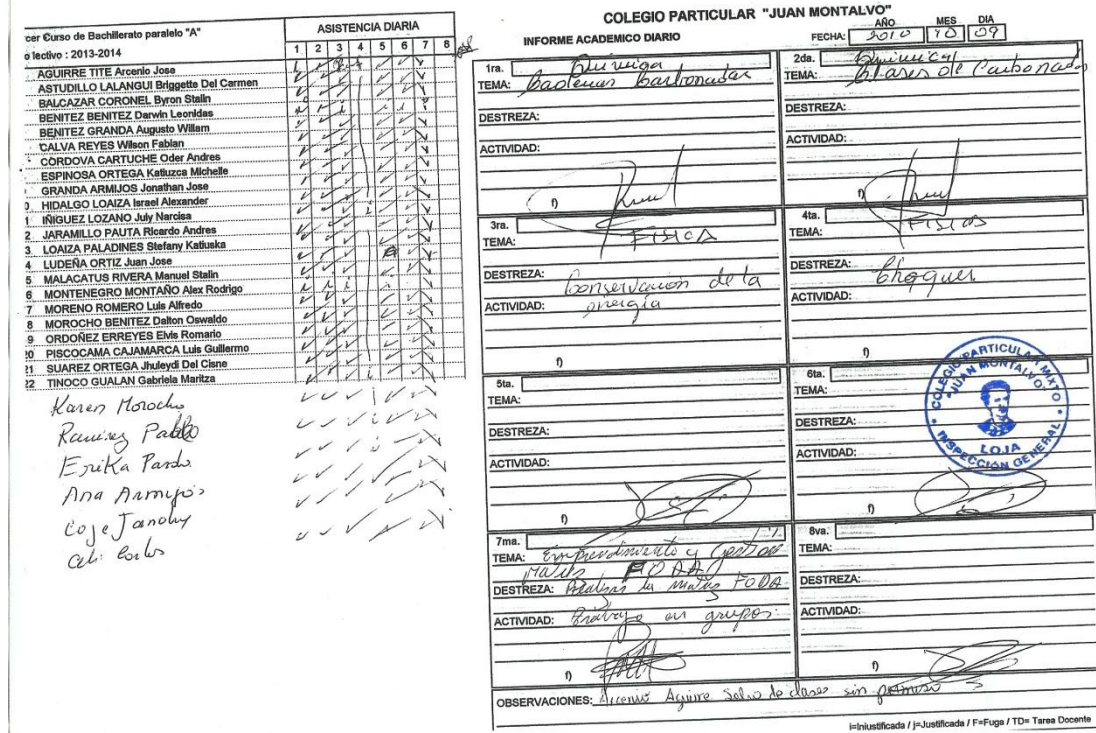 cer Curso de Bachillerato paralelo "A"
o lectivo : 2013-2014
ASISTENCIA DIARIA
1 2 3 4 5 6 7 8
AGUIRRE TITE Arcenio Jose
ASTUDILLO LALANGUI Briggette Del Carmen
BALCAZAR CORONEL Byron Stalin
BENITEZ BENITEZ Darwin Leonidas
BENITEZ GRANDA Augusto Willam
CALVA REYES Wilson Fabian
CORDOVA CARTUCHE Oder Andres
ESPINOSA ORTEGA Katiuzca Michelle
GRANDA ARMIJOS Jonathan Jose
0 HIDALGO LOAIZA Israel Alexander
1 IÑIGUEZ LOZANO July Narcisa
2 JARAMILLO PAUTA Ricardo Andres
3 LOAIZA PALADINES Stefany Katiuska
4 LUDEÑA ORTIZ Juan Jose
5 MALACATUS RIVERA Manuel Stalin
6 MONTENEGRO MONTAÑO Alex Rodrigo
7 MORENO ROMERO Luis Alfredo
8 MOROCHO BENITEZ Dalton Oswaldo
9 ORDOÑEZ ERREYES Elvis Romario
20 PISCOCAMA CAJAMARCA Luis Guillermo
21 SUAREZ ORTEGA Jhuleydi Del Cisne
22 TINOCO GUALAN Gabriela Maritza
Karen Morocho
Ramirez Pablo
Erika Pardo
Ana Armijos
Celi Carlos
COLEGIO PARTICULAR "JUAN MONTALVO"
INFORME ACADEMICO DIARIO
FECHA: AÑO MES DIA
2010 10 09
1ra. Quimica
TEMA: Cadenas Carbonadas
DESTREZA:
ACTIVIDAD:
f)
2da. Quimica
TEMA: Clases de Carbonados
DESTREZA:
ACTIVIDAD:
f)
3ra. FISICA
TEMA:
DESTREZA: Conservacion de la
ACTIVIDAD: energia
f)
4ta. FISICA
TEMA:
DESTREZA: Choques
ACTIVIDAD:
f)
5ta.
TEMA:
DESTREZA:
ACTIVIDAD:
f)
6ta.
TEMA:
DESTREZA:
ACTIVIDAD:
f)
COLEGIO PARTICULAR MIXTO
"JUAN MONTALVO"
LOJA
INSPECCIÓN GENERAL
7ma.
TEMA: Emprendimiento y Gestion
Matriz FODA
DESTREZA: Realizar la matriz FODA
ACTIVIDAD: Trabajo en grupos.
f)
8va.
TEMA:
DESTREZA:
ACTIVIDAD:
f)
OBSERVACIONES: Arcenio Aguirre Salio de clases sin permiso
i=Iniustificada / j=Justificada / F=Fuga / TD= Tarea Docente